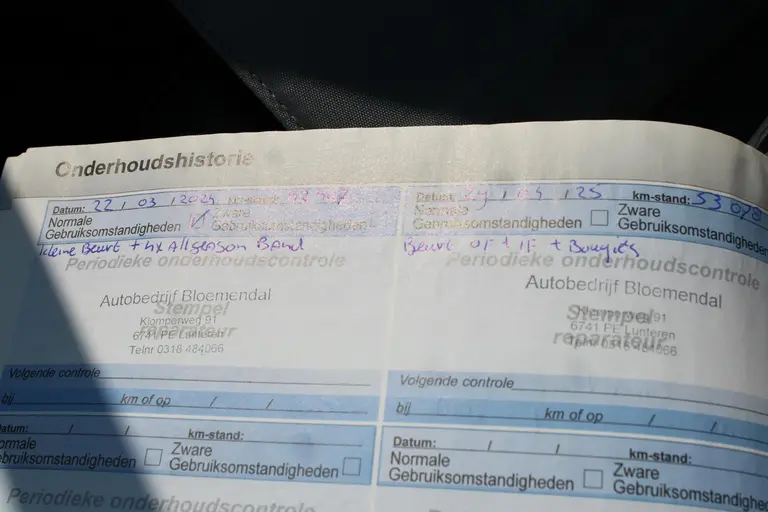 Onderhoudshistorie
Datum: 22 / 03 / 2024 km-stand:
Normale Gebruiksomstandigheden Zware Gebruiksomstandigheden
kleine Beurt + 4x Allseason Band
Periodieke onderhoudscontrole
Autobedrijf Bloemendal
Stempel reparateur
Klomperweg 91
6741 PE Lunteren
Telnr 0318 484066
Volgende controle
bij km of op / /
Datum: / 04 / 25 km-stand: 53 078
Normale Gebruiksomstandigheden Zware Gebruiksomstandigheden
Beurt OF + IF + Bougies
Periodieke onderhoudscontrole
Autobedrijf Bloemendal
Stempel reparateur
Klomperweg 91
6741 PE Lunteren
0318 484066
Volgende controle
bij km of op / /
Datum: / / km-stand:
Normale Gebruiksomstandigheden Zware Gebruiksomstandigheden
Periodieke onderhoudscontrole
Datum: / / km-stand:
Normale Gebruiksomstandigheden Zware Gebruiksomstandigheden